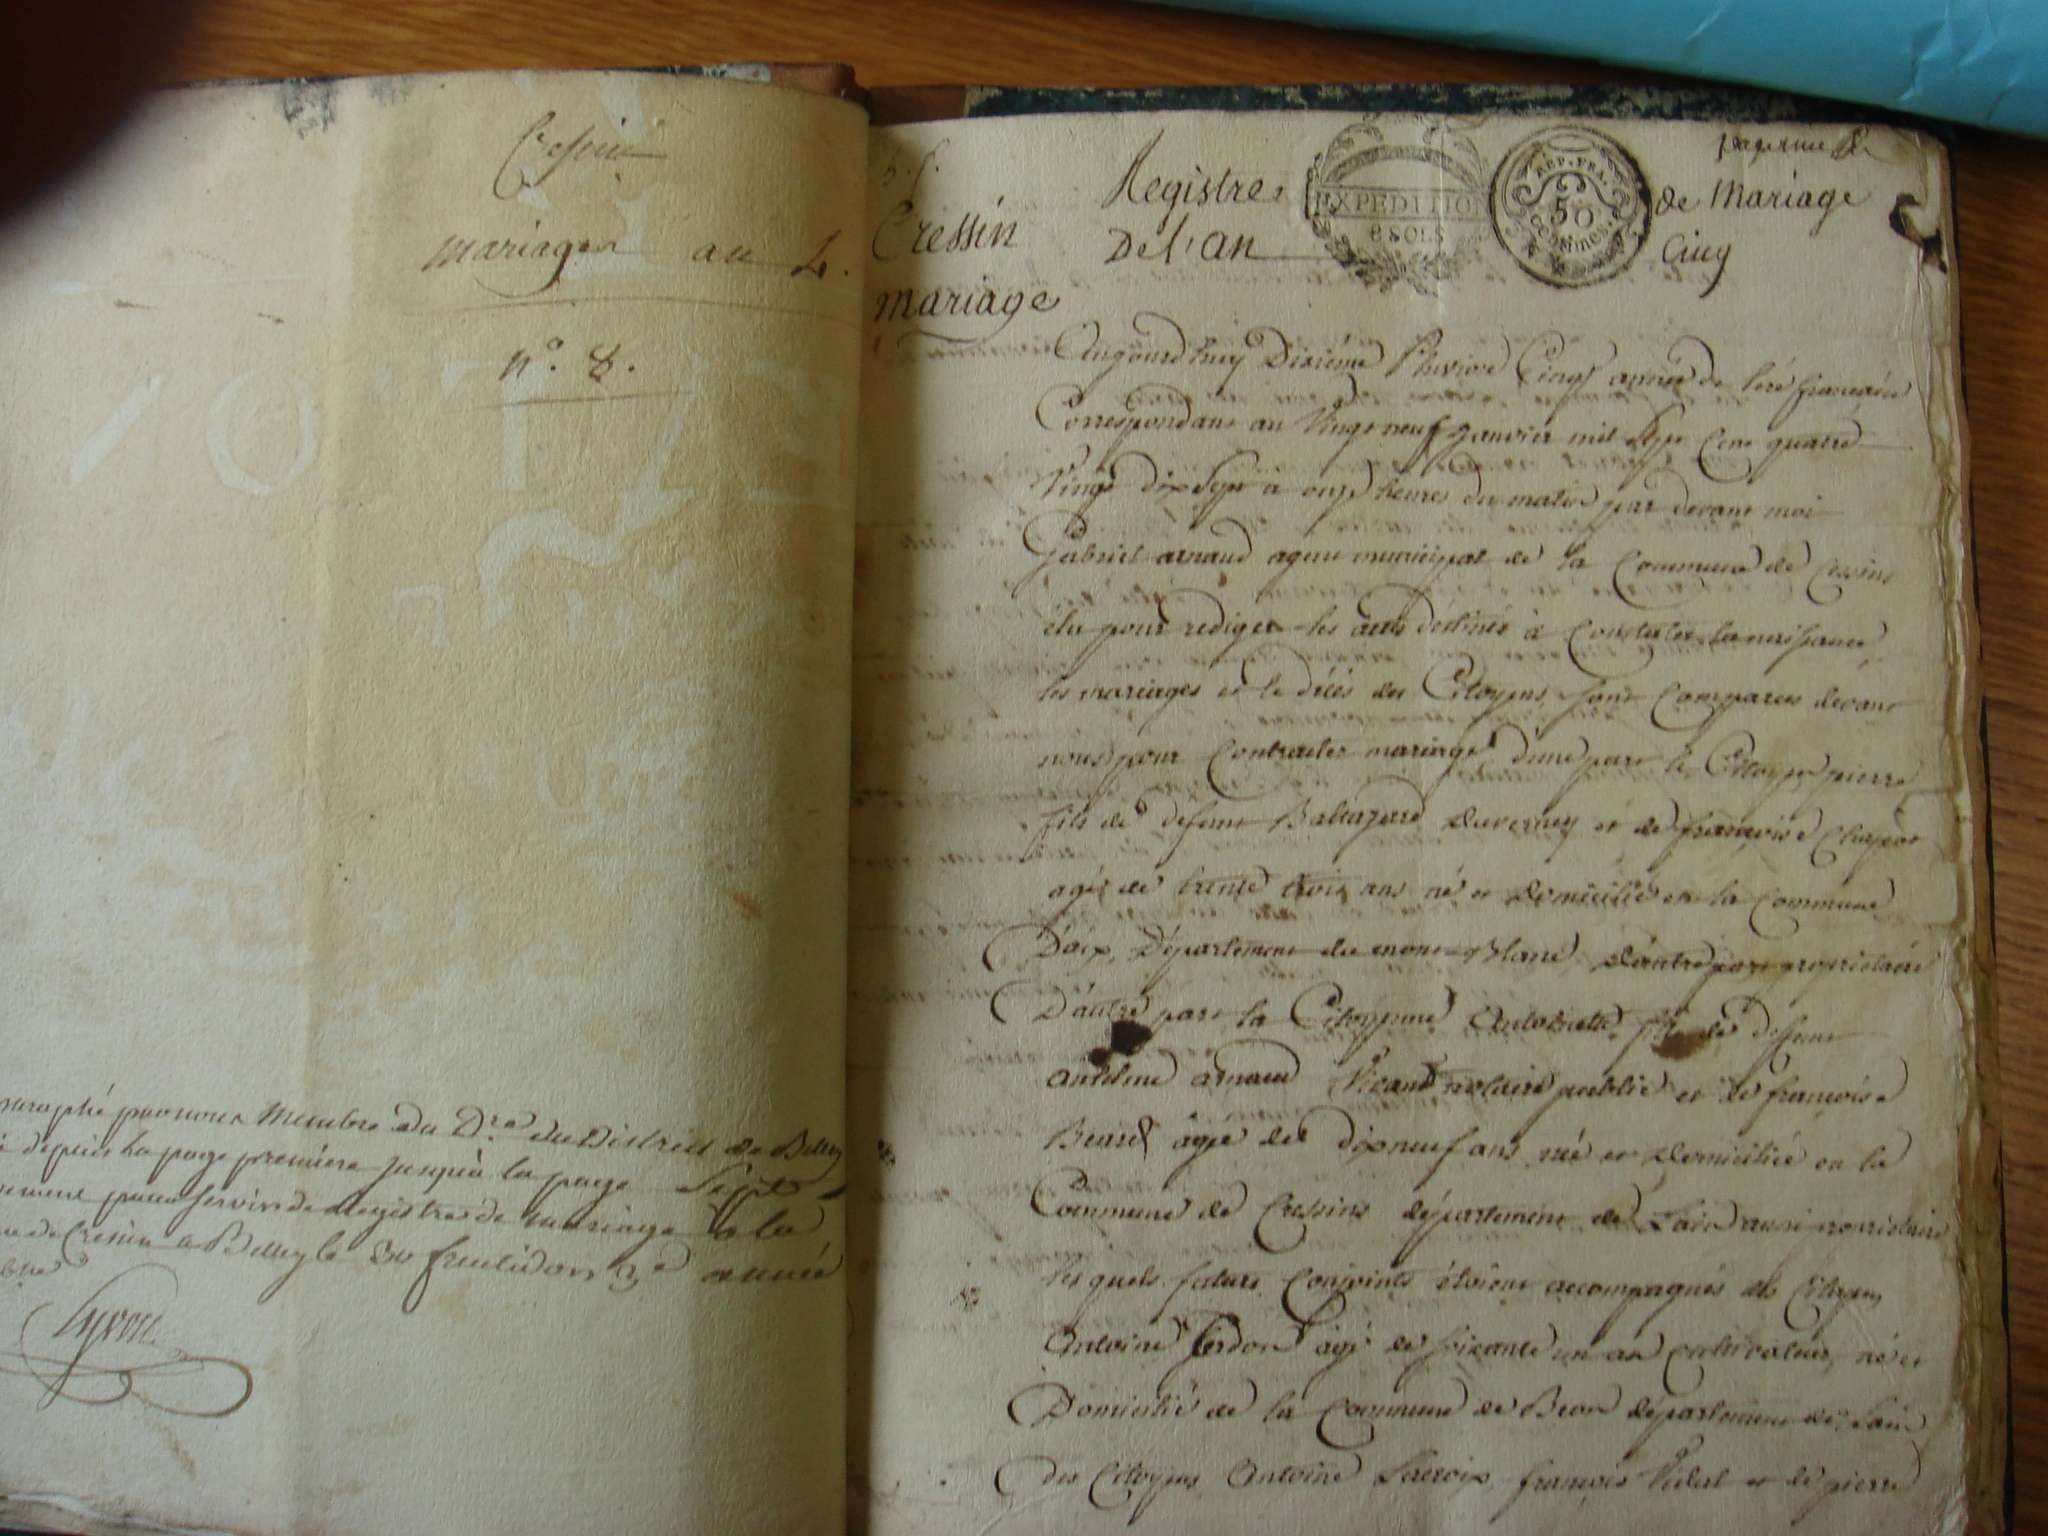 Cressin
mariages an 4.
n°. 8.
paraphé par nous Membre du D.re du District de Belley
depuis la page première jusqu'à la page Sept
pour servir de Registre de mariage de la
de Cressin a Belley le 30 fructidor 3.e année
Cressin
mariage
Registre de Mariage
De l'an Cinq
EXPEDITION
8 SOLS
REP. FRA.
50
Centimes
page une
Aujourdhuy Dixième Pluviose Cinq année de l'ère française
Correspondant au Vingt neuf Janvier mil Sept Cent quatre
Vingt dix Sept à onze heures du matin par devant moi
Gabriel arnaud agent municipal de la Commune de Cressins
élu pour rediger les actes déstinés à Constater la naissance
les mariages et le décés des Citoyens, sont Comparus devant
nous pour Contracter mariage d'une part le Citoyen pierre
fils de defunt Baltazard duverney et de françoise
agé de trente trois ans né et domicilié en la Commune
D'aix, Département du mont-Blanc d'autre part propriétaire
D'autre part la Citoyenne Antoinette fille de deffunt
Antelme arnaud notaire public et de françoise
agée de dix neuf ans née et domiciliée en la
Commune de Cressins département de Lain aussi propriétaire
les quels futurs Conjoints étoient accompagnés des Citoyens
Antoine agé de soixante un an cultivateur, né et
Domicilié de la Commune de Beon département de Lain
des Citoyens Antoine Lacroix, françois Vidal et de pierre